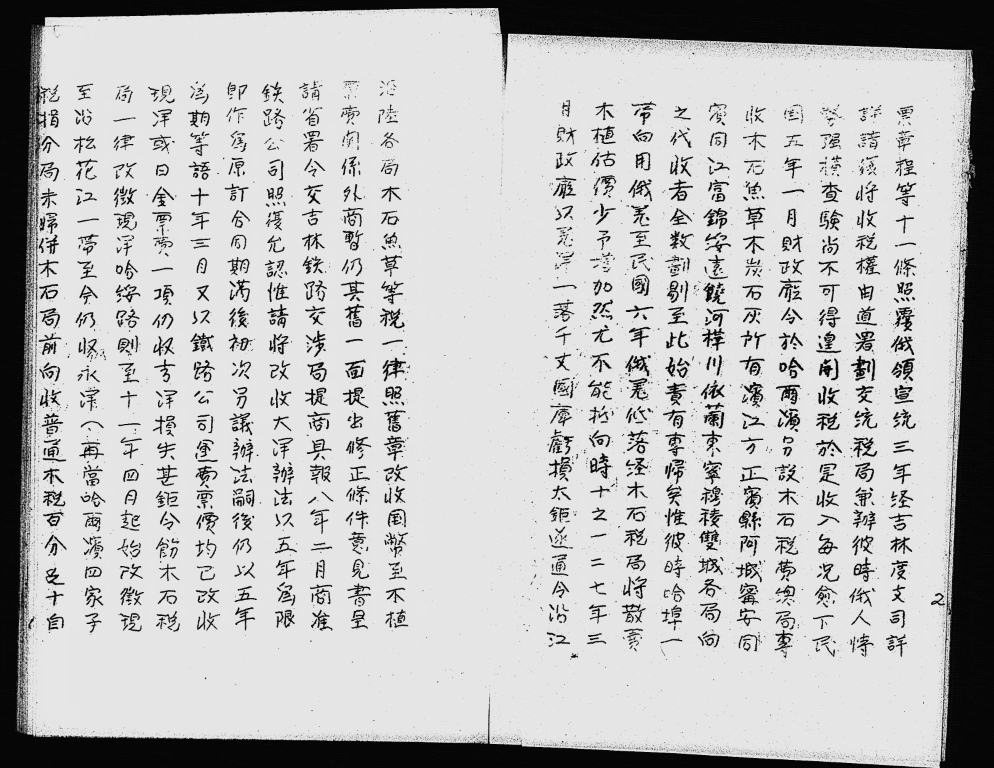 票章程等十一條照覆俄領宣统三年经吉林度支司詳
詳請後将收税權由道署劃交统税局兼辦彼時俄人恃
強横查驗尚不可得遑问收税於是收入每况愈下民
国五年一月財政廳令於哈爾濱另設木石税费總局專
收木石魚草木炭石灰所有濱江方正賓縣阿城寗安同
賓同江富錦綏遠饒河樺川依蘭東寧穆稜雙城各局向
之代收者全数劃剔至此始责有專帰矣惟彼時哈埠一
帶向用俄羌至民國六年俄羌低落经木石税局将票费
木植估價少予增加然尤不能抵向時十之一二七年三
月財政廳以羌洋一落千丈國庫虧損太鉅遂通令沿江
2
沿陸各局木石魚草等税一律照舊章改收国幣至木植
票费関係外商暫仍其舊一面提出修正條件意見書呈
請省署令交吉林鉄路交涉局提商具報八年二月商准
鉄路公司照復允認惟請将改收大洋辦法以五年為限
即作為原訂合同期滿後初次另議辦法嗣後仍以五年
為期等語十年三月又以鐵路公司運费票價均已改收
現洋或日金票费一項仍收羌洋損失甚鉅令飭木石税
局一律改徵現洋哈綏路則至十一年四月起始改徵現
至沿松花江一带至今仍收永洋（再當哈爾濱四家子
税捐分局未歸併木石局前向收普通木税百分之十自